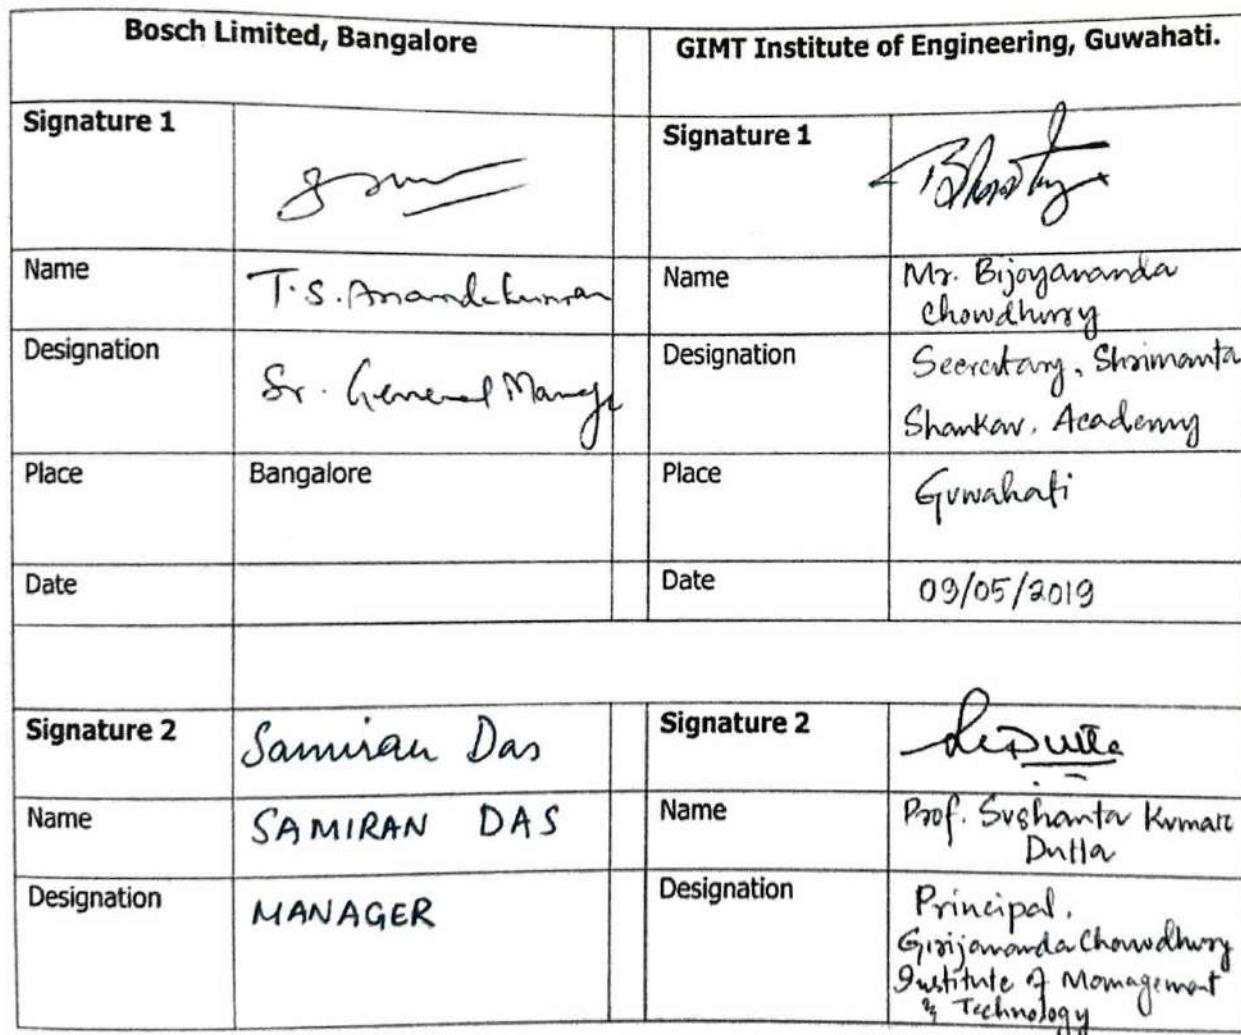 Bosch Limited, Bangalore
GIMT Institute of Engineering, Guwahati.
Signature 1
Signature 1
Name
T.S. Anandakumaran
Name
Mr. Bijoyananda
Chowdhury
Designation
Sr. General Manager
Designation
Secretary, Shrimanta
Shankar, Academy
Place
Bangalore
Place
Guwahati
Date
Date
09/05/2019
Signature 2
Samiran Das
Signature 2
Name
SAMIRAN DAS
Name
Prof. Sushanta Kumar
Dutta
Designation
MANAGER
Designation
Principal,
Girijananda Chowdhury
Institute of Management
& Technology